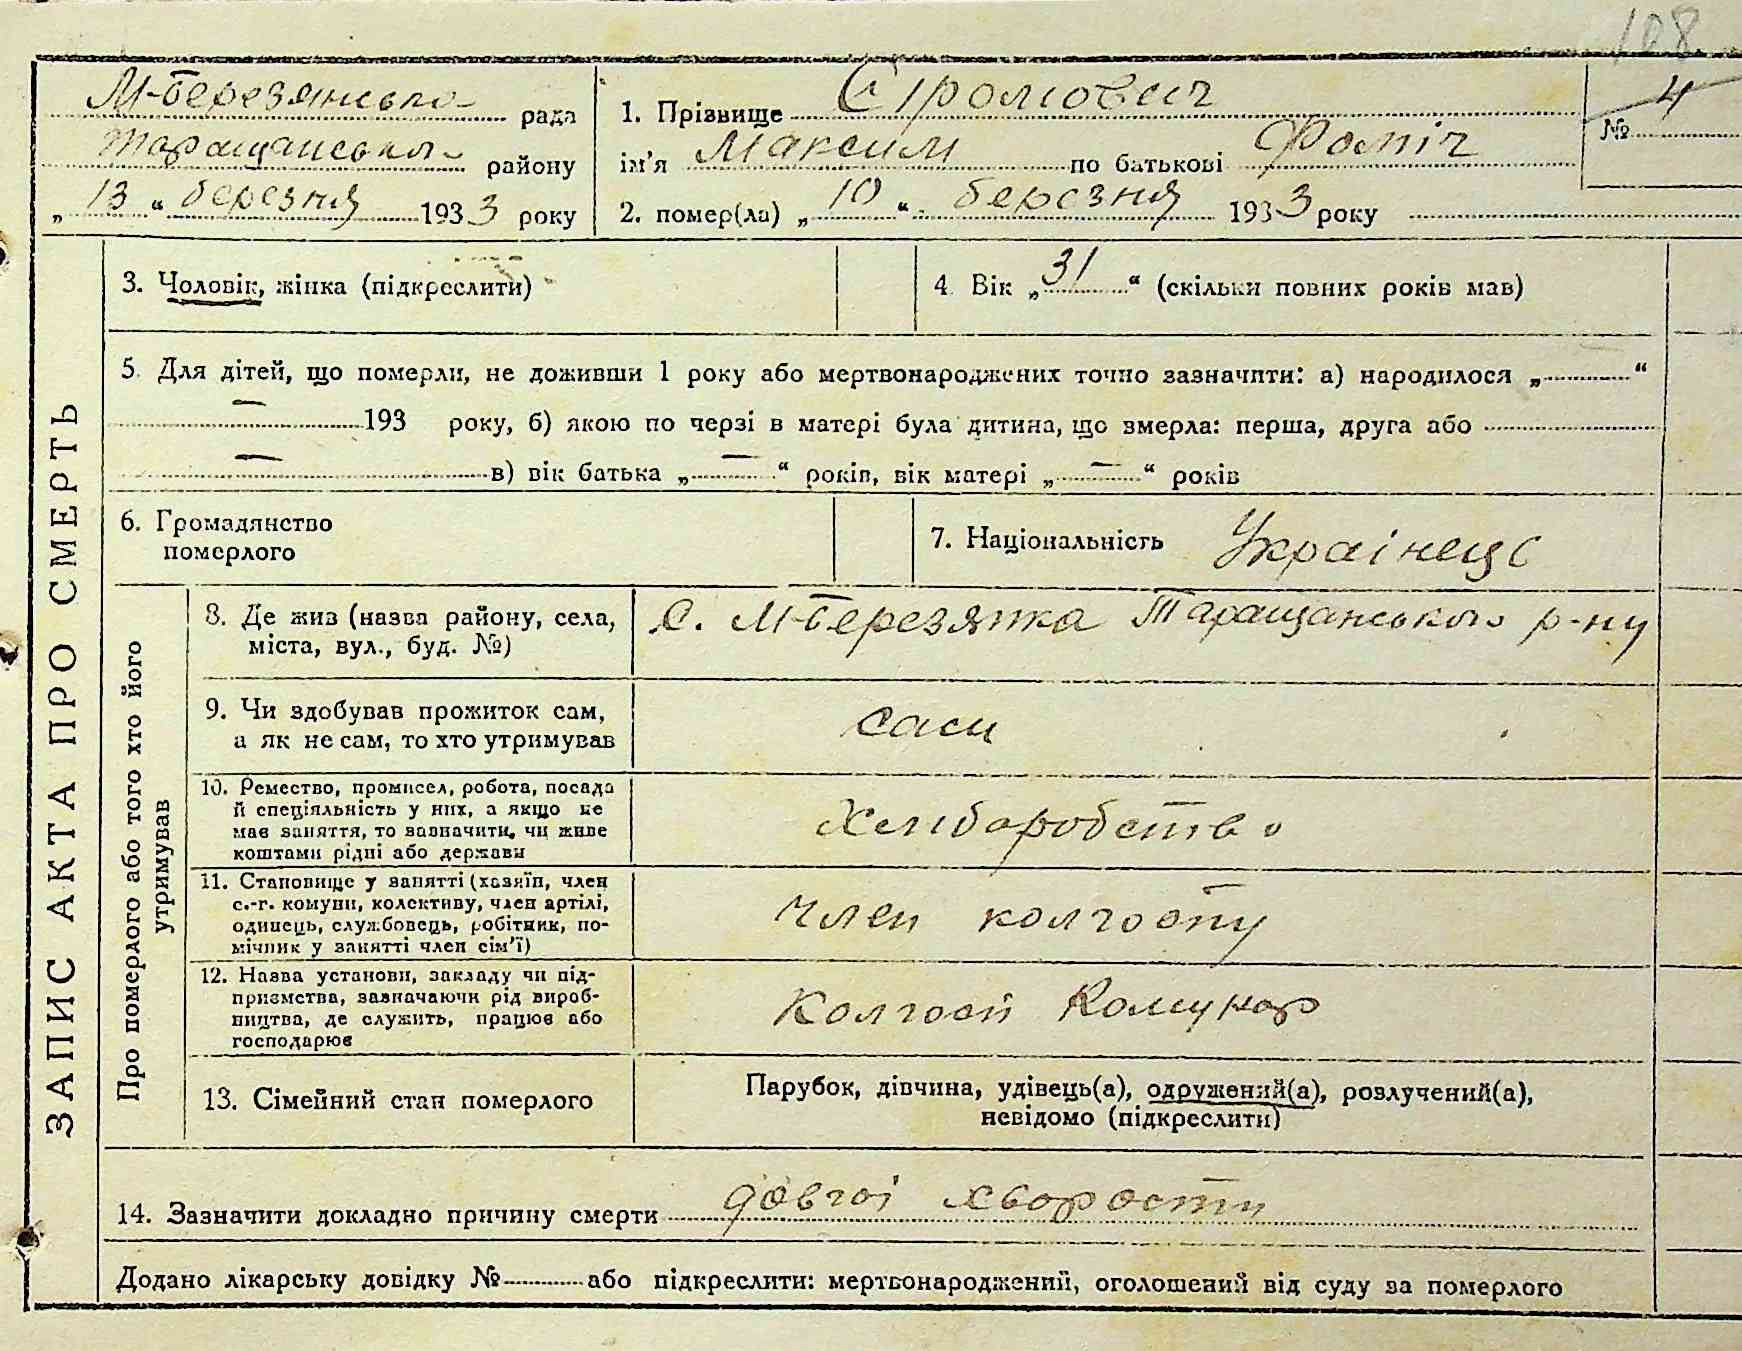 108
М-Березянська рада
Таращанського району
„ 13 “ березня 1933 року
1. Прізвище Стромович
ім'я Максим по батькові Фоміч
2. помер(ла) „ 10 “ березня 1933 року
№ 4
ЗАПИС АКТА ПРО СМЕРТЬ
3. Чоловік, жінка (підкреслити)
4 Вік „ 31 “ (скільки повних років мав)
5. Для дітей, що померли, не доживши 1 року або мертвонароджених точно зазначити: а) народилося „ “
— 193 року, б) якою по черзі в матері була дитина, що вмерла: перша, друга або
— в) вік батька „ — “ років, вік матері „ — “ років
6. Громадянство
померлого
7. Національність Українець
Про померлого або того хто його
утримував
8. Де жив (назва району, села,
міста, вул., буд. №)
с. М-Березянка Таращанського р-ну
9. Чи здобував прожиток сам,
а як не сам, то хто утримував
сам
10. Ремество, промисел, робота, посада
й спеціяльність у них, а якщо не
має заняття, то зазначити, чи живе
коштами рідні або держави
Хлиборобство
11. Становище у занятті (хазяїн, член
с.-г. комуни, колективу, член артілі,
одинець, службовець, робітник, по-
мічник у занятті член сім'ї)
член колгоспу
12. Назва установи, закладу чи під-
приємства, зазначаючи рід вироб-
ництва, де служить, працює або
господарює
Колгосп Комунар
13. Сімейний стан померлого
Парубок, дівчина, удівець(а), одружений(а), розлучений(а),
невідомо (підкреслити)
14. Зазначити докладно причину смерти довгої хворости
Додано лікарську довідку № або підкреслити: мертвонароджений, оголошений від суду за померлого